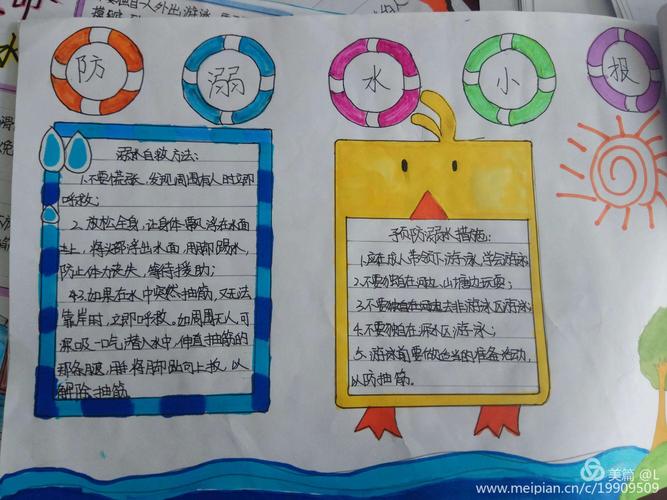 防 溺 水 小 报
溺水自救方法:
1.不要慌张,发现周围有人时立即
呼救;
2.放松全身,让身体飘浮在水面
上,将头部浮出水面,用脚踢水,
防止体力丧失,等待援助;
3.如果在水中突然抽筋,又无法
靠岸时,立即呼救,如周围无人,可
深吸一口气潜入水中,伸直抽筋的
那条腿,用手将脚趾向上扳,以
解除抽筋。
预防溺水措施:
1.应在成人带领下游泳,学会游泳
2.不要独自在河边、山塘边玩耍;
3.不要去非游泳区游泳
4.不要独自在深水区游泳;
5.游泳前要做适当的准备活动,
以防抽筋。
美篇 @L
www.meipian.cn/c/19909509